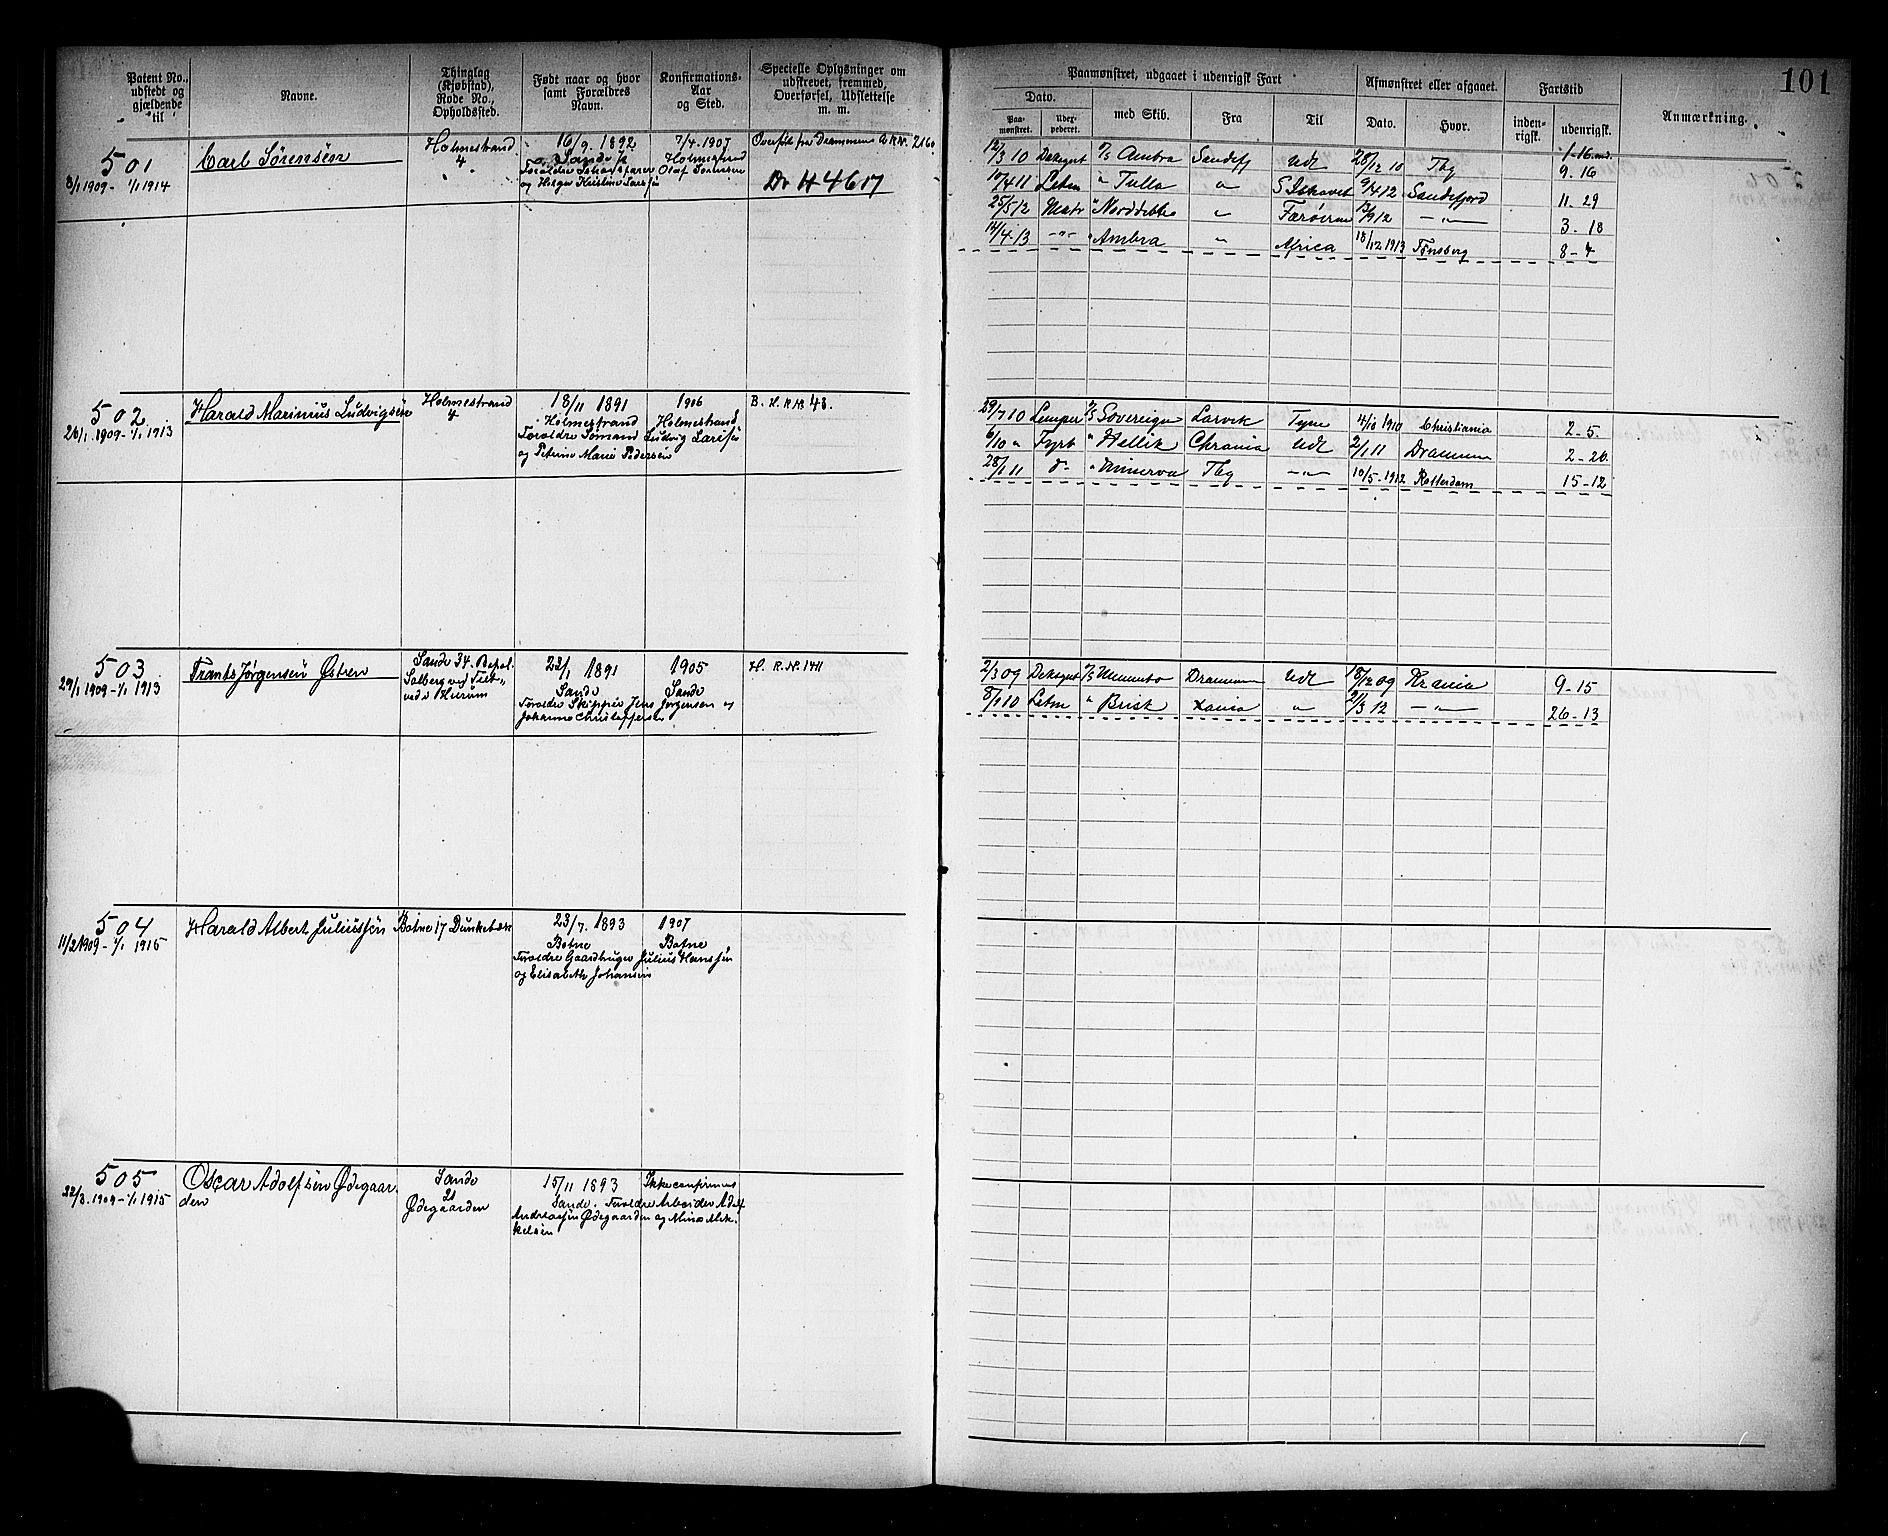 101
Patent No., udstedt og gjældende til
Navne.
Thinglag (Kjøbstad), Rode No., Opholdssted.
Født naar og hvor samt Forældres Navn.
Konfirmations-Aar og Sted.
Specielle Oplysninger om udskrevet, fremmed, Overførsel, Udslettelse m. m.
Paamønstret, udgaaet i udenrigsk Fart
Dato.
Paamønstret.
med Skib.
Fra
Til
Afmønstret eller afgaaet.
Dato.
Hvor.
Fartstid
indenrigsk.
udenrigsk.
Anmærkning.
501
8/1 1909 - 1/1 1914
Carl Sørensen
Holmestrand
4
16/9. 1892
Sande
7/4. 1907
Holmestrand
Olaf Sørensen
Overført fra Drammens A.R.N. 2160
Dr 44617
12/3 10 Deksgut Ambra Sandefj Udl 28/12 10 Tbg
1-16 md.
9. 16
17/4 11 Letm " Tulla " 9/4 12 Sandefjord
11. 29
25/5 12 Matr " " Færøerne 13/9 12 — " —
3. 18
14/4. 13 -"- " Ambra " Africa 18/12 1913 Tønsberg
8 - 4
502
26/1. 1909 - 1/1 1913
Harald Marinius Ludvigsen
Holmestrand
4
18/11 1891
Holmestrand
Forældre Sømand Ludvig Larsen
og Petrine Marie Pedersen
1906
Holmestrand
B. H. R. N. 48.
29/7 10 Sovereign Larvik Tyne 4/10 1910 Christiania
2 - 5.
6/10 " Fyrb Chrania Udl 2/1 11 Drammen
2 - 20.
28/1 11 do " Minerva Tbg — " — 10/5 - 1912 Rotterdam
15 - 12
503
29/1 1909 - 1/1 1913
Frants Jørgensen Østren
Sande 34. Bopæl
Solberg ved
Hurum
22/1 1891
Sande
Forældre Skipper Jens Jørgensen og
Johanne Christoffersen
1905
Sande
H. R. N. 1411
2/3 09 Deksgut Memento Drammen Udl 18/12 09 Krania
9 - 15
8/1 10 Letm " Brisk Xania " 21/3 12 — " —
26 - 13
504
11/2 1909 - 1/1 1915
Harald Albert Juliussen
Botne 17 Dunkebæk
23/7. 1893
Botne
Forældre Gaardbruger Julius Hanssen
og Elisabeth Johansen
1907
Botne
505
22/3. 1909 - 1/1 1915
Oscar Adolfsen Ødegaarden
Sande
21
Ødegaarden
15/11 1893
Sande. Forældre Arbeider Adolf
Andreassen Ødegaarden og Mina Mikkelsen
Ikke confirmeret